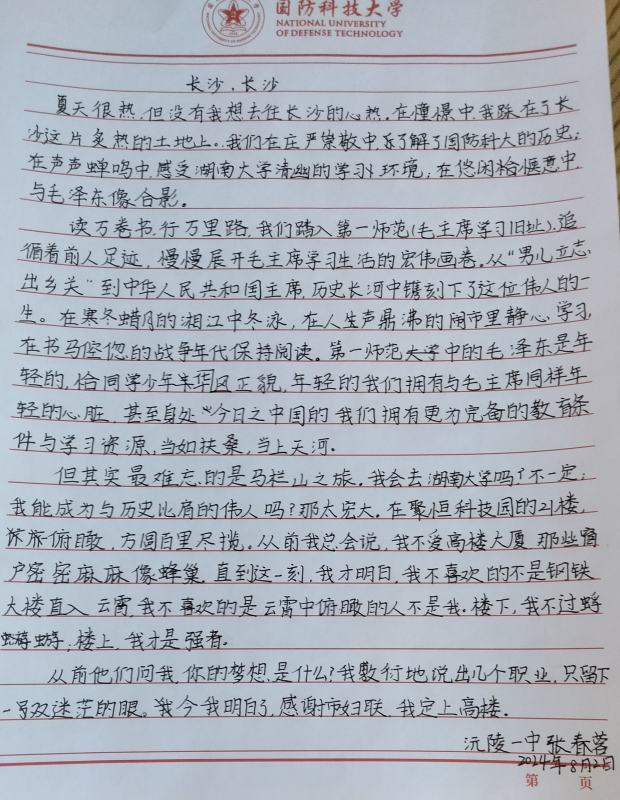 国防科技大学
NATIONAL UNIVERSITY
OF DEFENSE TECHNOLOGY
长沙,长沙
夏天很热,但没有我想去往长沙的心热。在憧憬中,我踩在了长
沙这片炙热的土地上。我们在庄严崇敬中了解了国防科大的历史;
在声声蝉鸣中感受湖南大学清幽的学习环境;在悠闲恰惬意中,
与毛泽东像合影。
读万卷书,行万里路,我们踏入第一师范(毛主席学习旧址),追
循着前人足迹,慢慢展开毛主席学习生活的宏伟画卷。从“男儿立志
出乡关”到中华人民共和国主席,历史长河中镌刻下了这位伟人的一
生。在寒冬蜡月的湘江中冬泳,在人生声鼎沸的闹市里静心学习,
在书马倥偬的战争年代保持阅读。第一师范大学中的毛泽东是年
轻的,恰同学少年风华正貌,年轻的我们拥有与毛主席同样年
轻的心脏,甚至身处“今日之中国的我们拥有更为完备的教育条
件与学习资源,当如扶桑,当上天河.
但其实最难忘的是马栏山之旅。我会去湖南大学吗?不一定;
我能成为与历史比肩的伟人吗?那太宏大。在聚恒科技园的21楼,
俯瞰,方圆百里尽揽。从前我总会说,我不爱高楼大厦,那些窗
户密密麻麻像蜂巢,直到这一刻,我才明白,我不喜欢的不是钢铁
大楼直入云霄,我不喜欢的是云霄中俯瞰的人不是我.楼下,我不过蜉
蝣;楼上,我才是强者。
从前他们问我,你的梦想是什么?我敷衍地说出几个职业,只留下
一双迷茫的眼。我今我明白了,感谢市妇联,我定上高楼.
沅陵一中 张春蓉
2024年8月2日
第 页